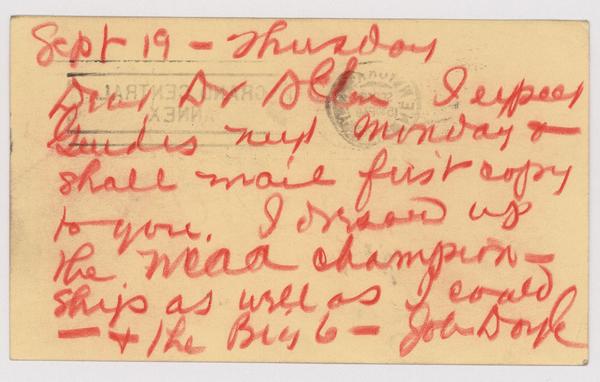 Sept 19 - Thursday
Dear Dr Allen I expect
Guides next Monday &
shall mail first copy
to you. I dressed up
the NCAA champion-
ship as well as I could
- + the Big 6 -
GRAND CENTRAL
ANNEX